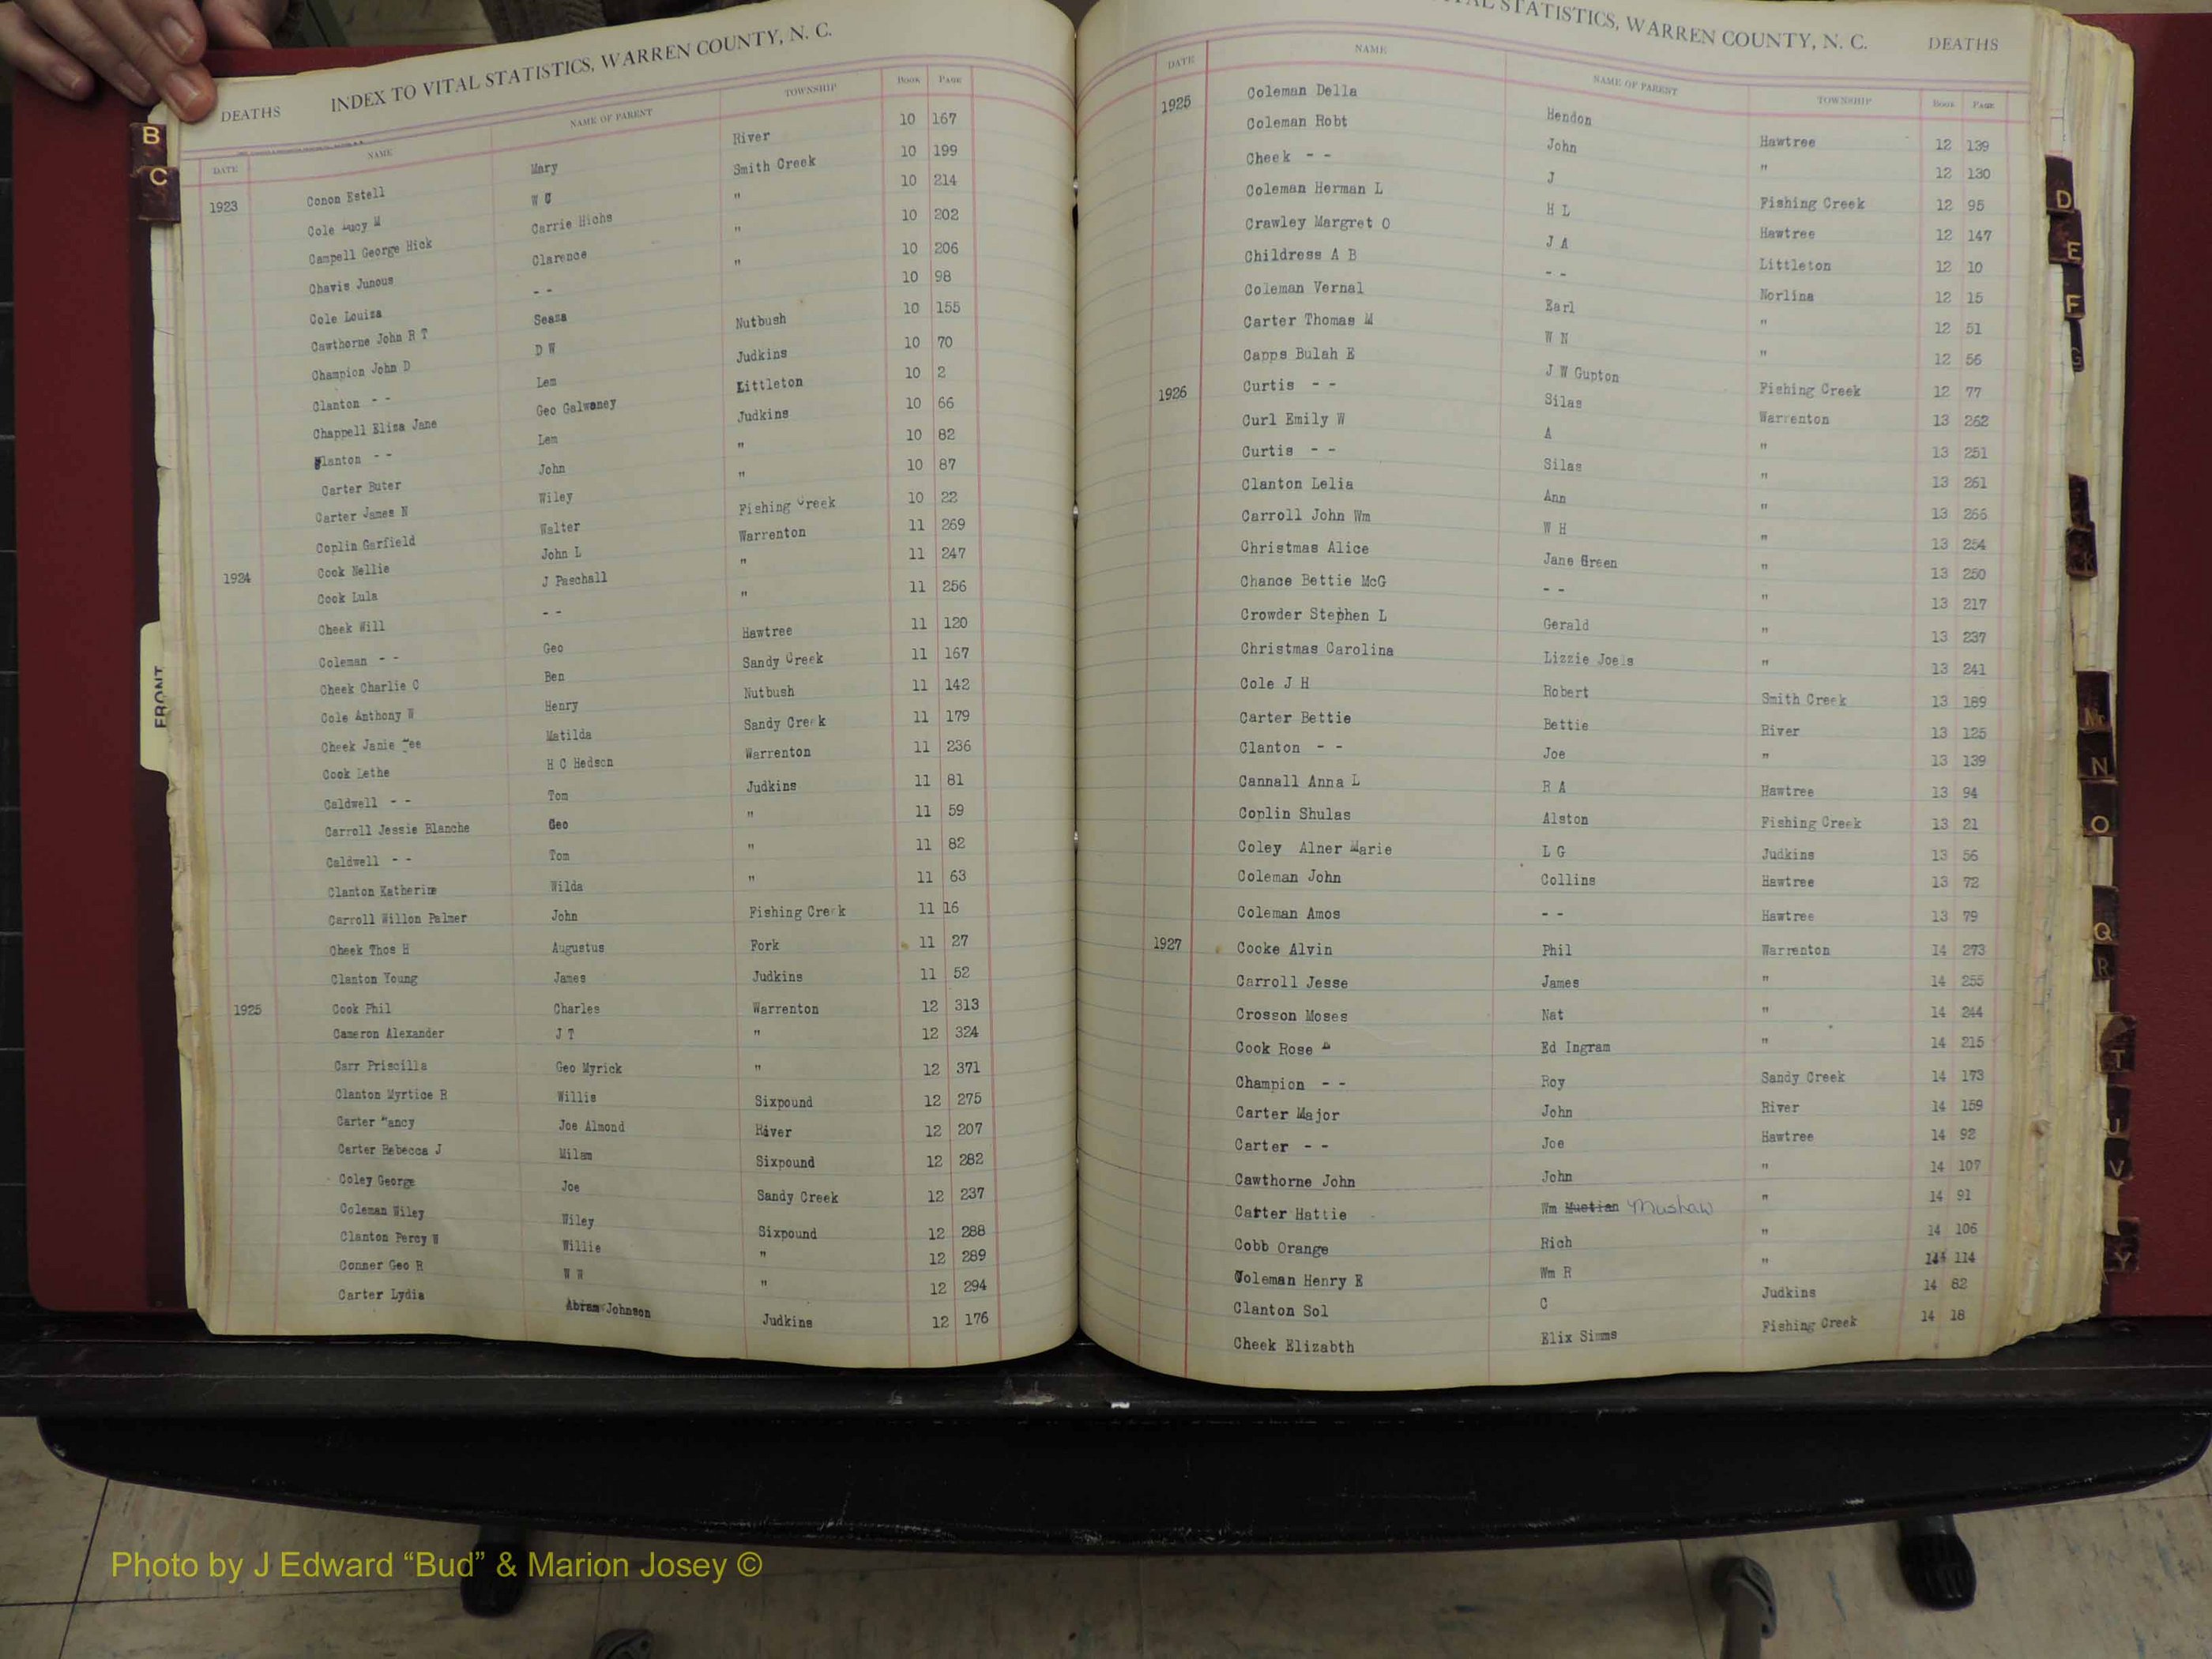 DEATHS INDEX TO VITAL STATISTICS, WARREN COUNTY, N. C.
DATE NAME NAME OF PARENT TOWNSHIP BOOK PAGE
1923 Conon Estell Mary River 10 167
Cole Lucy M W U Smith Creek 10 199
Campell George Hick Carrie Hichs " 10 214
Chavis Junous Clarence " 10 202
Cole Louisa - - " 10 206
Cawthorne John R T Seaza 10 98
Champion John D D W Nutbush 10 155
Clanton - - Lem Judkins 10 70
Chappell Eliza Jane Geo Galwaney Littleton 10 2
Clanton - - Lem Judkins 10 66
Carter Buter John " 10 82
Carter James N Wiley " 10 87
Coplin Garfield Walter Fishing Creek 10 22
1924 Cook Nellie John L Warrenton 11 269
Cook Lula J Paschall " 11 247
Cheek Will - - " 11 256
Coleman - - Geo Hawtree 11 120
Cheek Charlie C Ben Sandy Creek 11 167
Cole Anthony W Henry Nutbush 11 142
Cheek Janie Lee Matilda Sandy Creek 11 179
Cook Lethe H C Hedson Warrenton 11 236
Caldwell - - Tom Judkins 11 81
Carroll Jessie Blanche Geo " 11 59
Caldwell - - Tom " 11 82
Clanton Katherine Wilda " 11 63
Carroll Willon Palmer John Fishing Creek 11 16
Cheek Thos H Augustus Fork 11 27
Clanton Young James Judkins 11 52
1925 Cook Phil Charles Warrenton 12 313
Cameron Alexander J T " 12 324
Carr Priscilla Geo Myrick " 12 371
Clanton Myrtice R Willis Sixpound 12 275
Carter Nancy Joe Almond River 12 207
Carter Rebecca J Milam Sixpound 12 282
Coley George Joe Sandy Creek 12 237
Coleman Wiley Wiley Sixpound 12 288
Clanton Percy W Willie " 12 289
Conner Geo R W W " 12 294
Carter Lydia Abram Johnson Judkins 12 176
STATISTICS, WARREN COUNTY, N. C. DEATHS
DATE NAME NAME OF PARENT TOWNSHIP BOOK PAGE
1925 Coleman Della Hendon Hawtree 12 139
Coleman Robt John " 12 130
Cheek - - J Fishing Creek 12 95
Coleman Herman L H L Hawtree 12 147
Crawley Margret O J A Littleton 12 10
Childress A B - - Norlina 12 15
Coleman Vernal Earl " 12 51
Carter Thomas M W N " 12 56
Capps Bulah E J W Gupton Fishing Creek 12 77
1926 Curtis - - Silas Warrenton 13 262
Curl Emily W A " 13 251
Curtis - - Silas " 13 261
Clanton Lelia Ann " 13 266
Carroll John Wm W H " 13 254
Christmas Alice Jane Green " 13 250
Chance Bettie McG - - " 13 217
Crowder Stephen L Gerald " 13 237
Christmas Carolina Lizzie Joels " 13 241
Cole J H Robert Smith Creek 13 189
Carter Bettie Bettie River 13 125
Clanton - - Joe " 13 139
Cannall Anna L R A Hawtree 13 94
Coplin Shulas Alston Fishing Creek 13 21
Coley Alner Marie L G Judkins 13 56
Coleman John Collins Hawtree 13 72
Coleman Amos - - Hawtree 13 79
1927 Cooke Alvin Phil Warrenton 14 273
Carroll Jesse James " 14 255
Crosson Moses Nat " 14 244
Cook Rose Ed Ingram " 14 215
Champion - - Roy Sandy Creek 14 173
Carter Major John River 14 159
Carter - - Joe Hawtree 14 92
Cawthorne John John " 14 107
Carter Hattie Wm Mustian Mushaw " 14 91
Cobb Orange Rich " 14 106
Coleman Henry E Wm R " 14 114
Clanton Sol C Judkins 14 62
Cheek Elizabth Elix Simms Fishing Creek 14 18
B
C
FRONT
D
E
F
G
K
Mc
N
O
Q
R
T
U
V
Y
Photo by J Edward “Bud” & Marion Josey ©